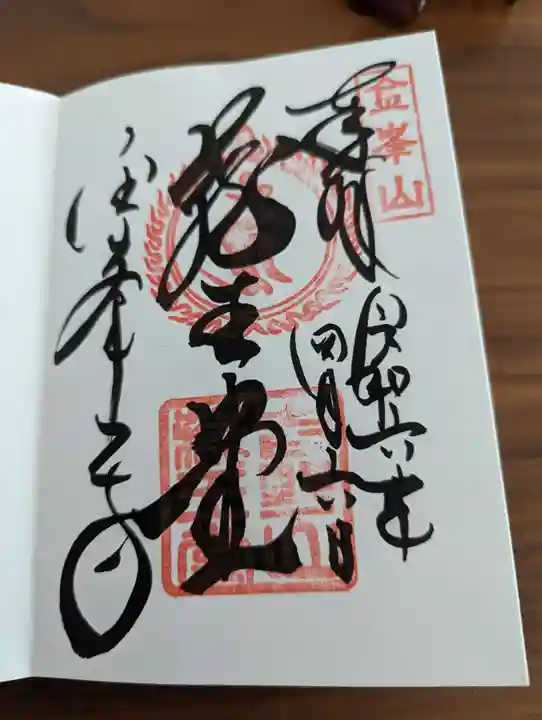 金峯山
奉拝
令和六年
四月十六日
蔵王堂
金峯山寺